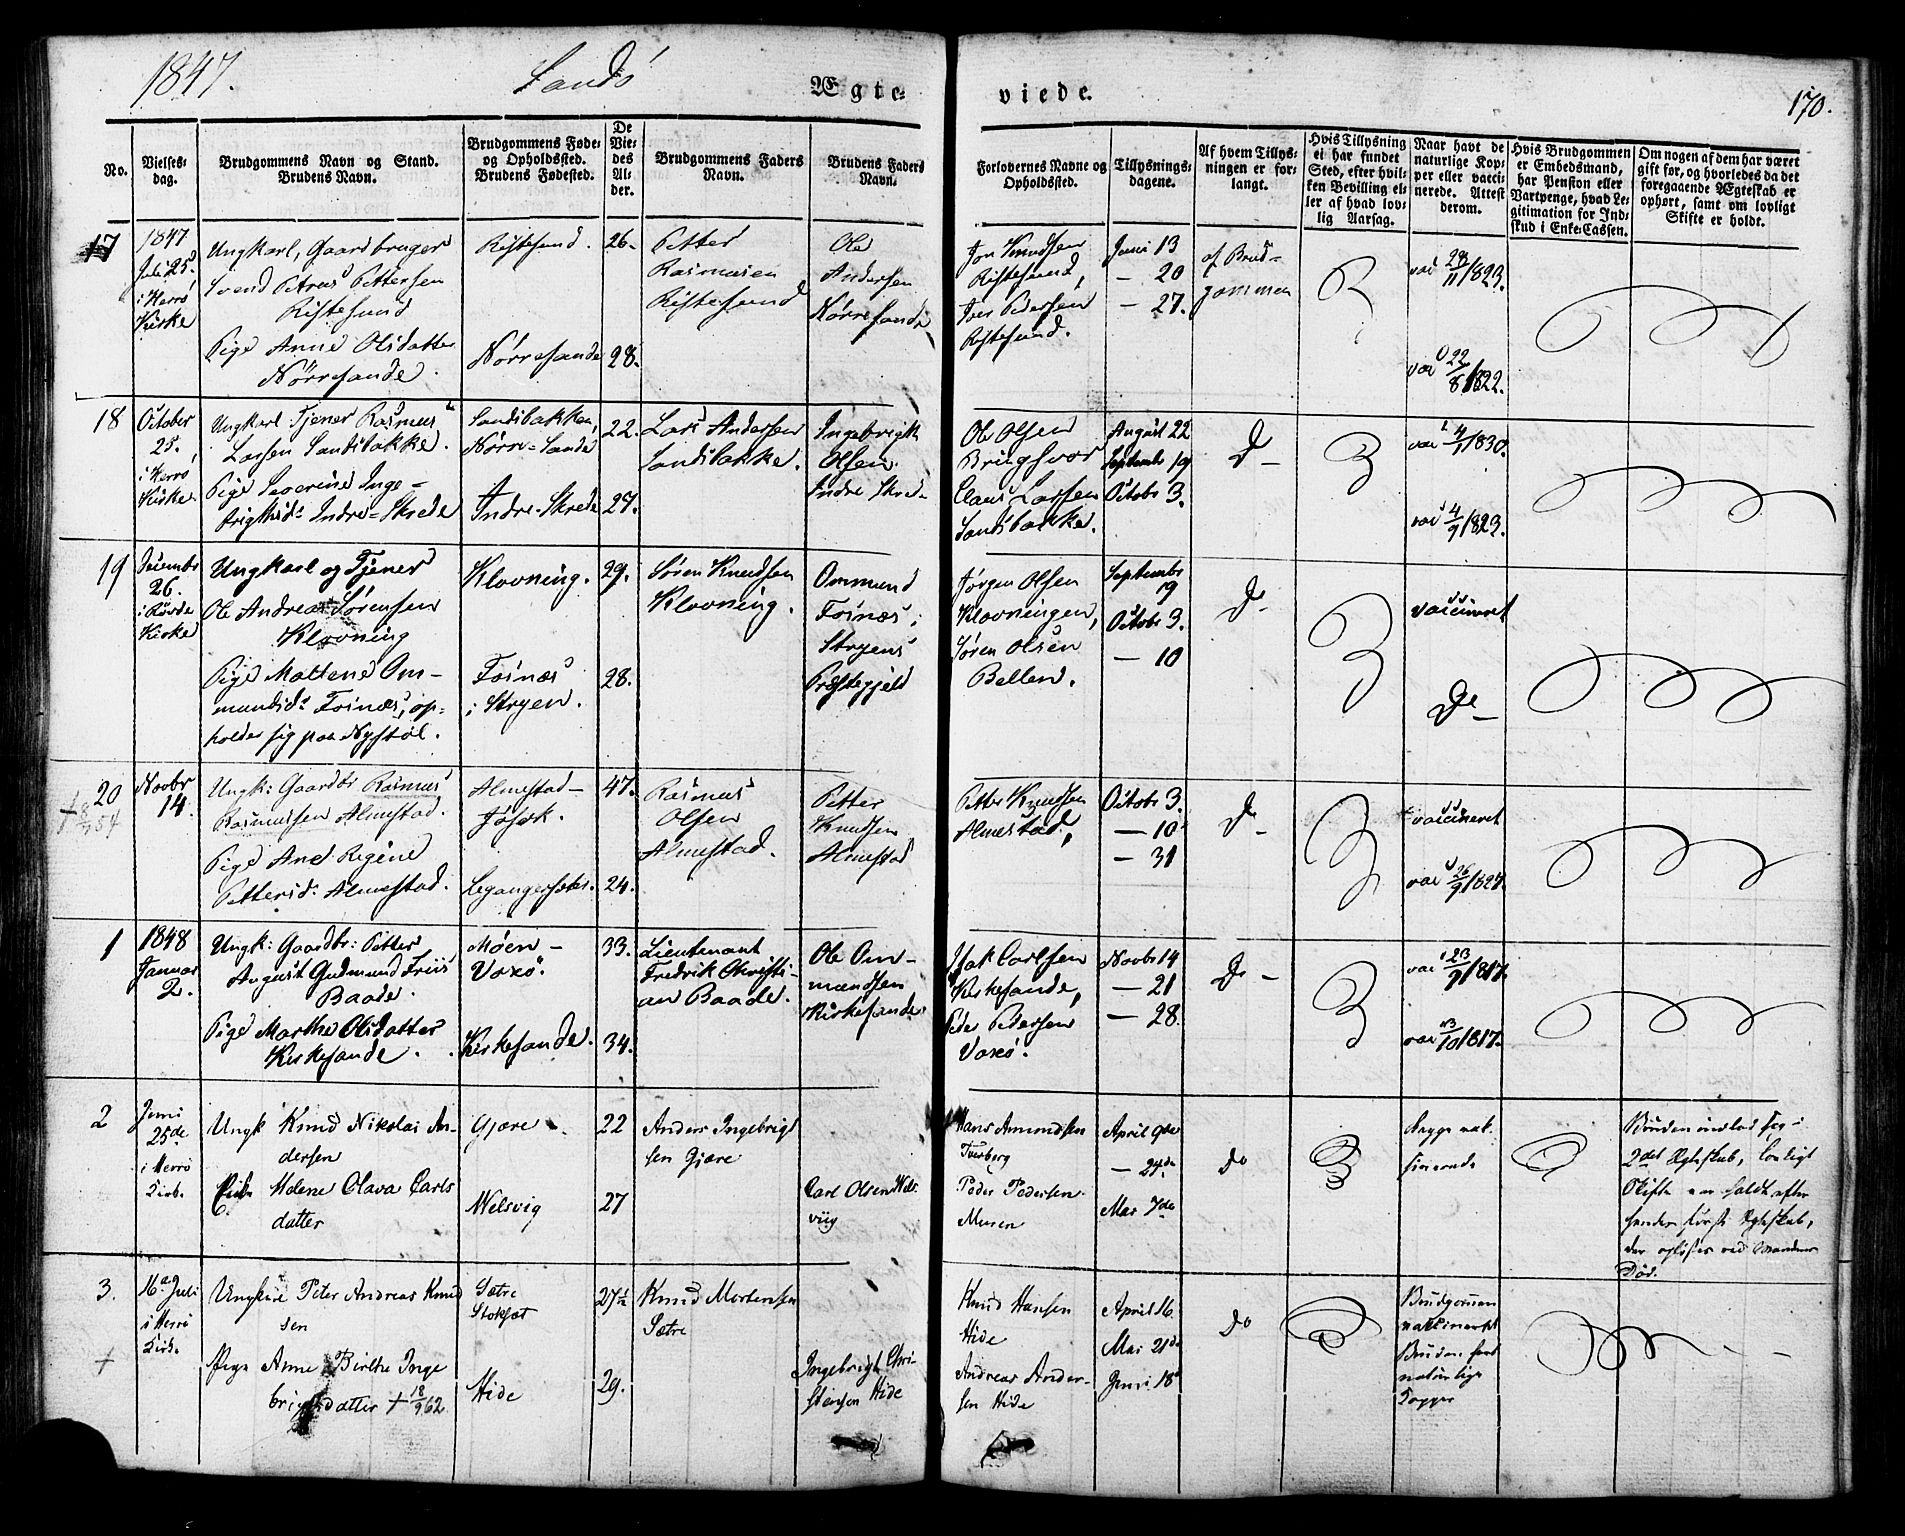 1847.
Sandø
Ægte-
viede.
170.
No.
Vielses-
dag.
Brudgommens Navn og Stand.
Brudens Navn.
Brudgommens Føde-
og Opholdssted.
Brudens Fødested.
De
Vie-
des
Al-
der.
Brudgommens Faders
Navn.
Brudens Faders
Navn.
Forlovernes Navne og
Opholdssted.
Tillysnings-
dagene.
Af hvem Tillys-
ningen er for-
langt.
Hvis Tillysning
ei har fundet
Sted, efter hvil-
ken Bevilling el-
ler af hvad lov-
lig Aarsag.
Naar havt de
naturlige Kop-
per eller vacci-
nerede. Attest
derom.
Hvis Brudgommen
er Embedsmand,
har Pension eller
Vartpenge, hvad Le-
gitimation for Ind-
skud i Enke-Cassen.
Om nogen af dem har været
gift før, og hvorledes da det
foregaaende Ægteskab er
ophørt, samt om lovligt
Skifte er holdt.
17
1847
Juli 25d
i Herrø
Kirke
Ungkarl, Gaardbruger
Svend Petrus Pettersen
Ristesund
Pige Anne Olsdatter
Nørresande.
Ristesund.
Nørresande
26.
28.
Petter
Rasmusen
Ristesund
Ole
Andersen
Nørresande
Jon Knudsen
Ristesund,
Iver Pedersen
Ristesund.
Juni 13
— 20
— 27.
af Brud-
gommen
vac 28/11 1823.
vac 22/8 1822.
18
October
25.
i Herrø
Kirke
Ungkarl Tjener Rasmus
Larsen Sandsbakke.
Pige Severine Inge-
brigtsd: Indre-Skrede
Sandsbakken,
Nørre-Sande
Indre-Skrede
22.
27.
Lars Andersen
Sandsbakke.
Ingebrigt
Olsen
Indre Skred-
Ole Olsen
Bringsvor
Claus Larsen
Sandsbakke.
August 22
Septembr 19
Octobr 3.
Do —
vac 4/1 1830.
vac 4/9 1823.
19
Decembr
26.
i Rövde
Kirke
Ungkarl og Tjener
Ole Andreas Sørensen
Klovning
Pige Maltene Om-
mundsd: Fosnæs, op-
holder sig paa Nystøl.
Klovning.
Fosnæs
i Stryen.
29.
28.
Søren Knudsen
Klovning.
Ommund
Fosnæs i
Stryens
Præstegjeld
Jørgen Olsen
Klovningen,
Søren Olsen
Bellen.
Septembr
19
Octobr 3.
— 10
Do
vaccineret
Do —
20
Novbr
14.
Ungk: Gaardbr Rasmus
Rasmussen Almestad.
Pige Ane Regine
Pettersd: Almestad.
Almestad-
Jøsok.
Legangersæter.
47.
24.
Rasmus
Olsen
Almestad.
Petter
Knudsen
Almestad
Petter Knudsen
Almestad,
Octobr 3.
— 10
— 31
Do
vaccineret
vac 26/9 1827.
1
1848
Januar
2.
Ungk: Gaardbr: Petter
August Gudmund Friis
Baade.
Pige Marthe Olsdatter
Kirkesande.
Møen-
Voxø.
Kirkesande.
33.
34.
Lieutenant
Fredrik Christi-
an Baade.
Ole Om-
mundsen
Kirkesande
Isak Carlsen
Kirkesande,
Peder Pedersen
Voxø.
Novbr 14
— 21
— 28.
Do —
vac 23/9 1817.
vac 3/10 1817.
2
Juni
25de
i Herrø
Kirke
Ungk Knud Nikolai An-
dersen
Enke Helene Olava Carls
datter
Gjære
Welsvig
22
27
Anders Ingebrigt
sen Gjære
Carl Olsen Wels
viig
Hans Amundsen
Tverberg
Peder Pedersen
Muren
April 9de
— 24de
Mai 7de
Do
begge vak
sinerede
Bruden indlod sig i
2det Ægteskab, lovligt
Skifte var holdt efter
hendes første Ægteskab,
der opløstes ved Mandens
Død.
3.
16de Juli
i Herrø
Kirke
Ungkarl Peter Andreas Knud
sen
Pige Anne Birthe Inge
brigtsdatter + 18/9 62
Sætre
Stoksæt
Hide
27½
29.
Knud Mortensen
Sætre
Ingebrigt Chri-
stensen Hide
Knud Hansen
Hide
Andreas Ander-
sen Hide
April 16
Mai 21de
Juni 18de
Do
Brudgommen
vakcineret
Bruden havt
naturlige
Kopper